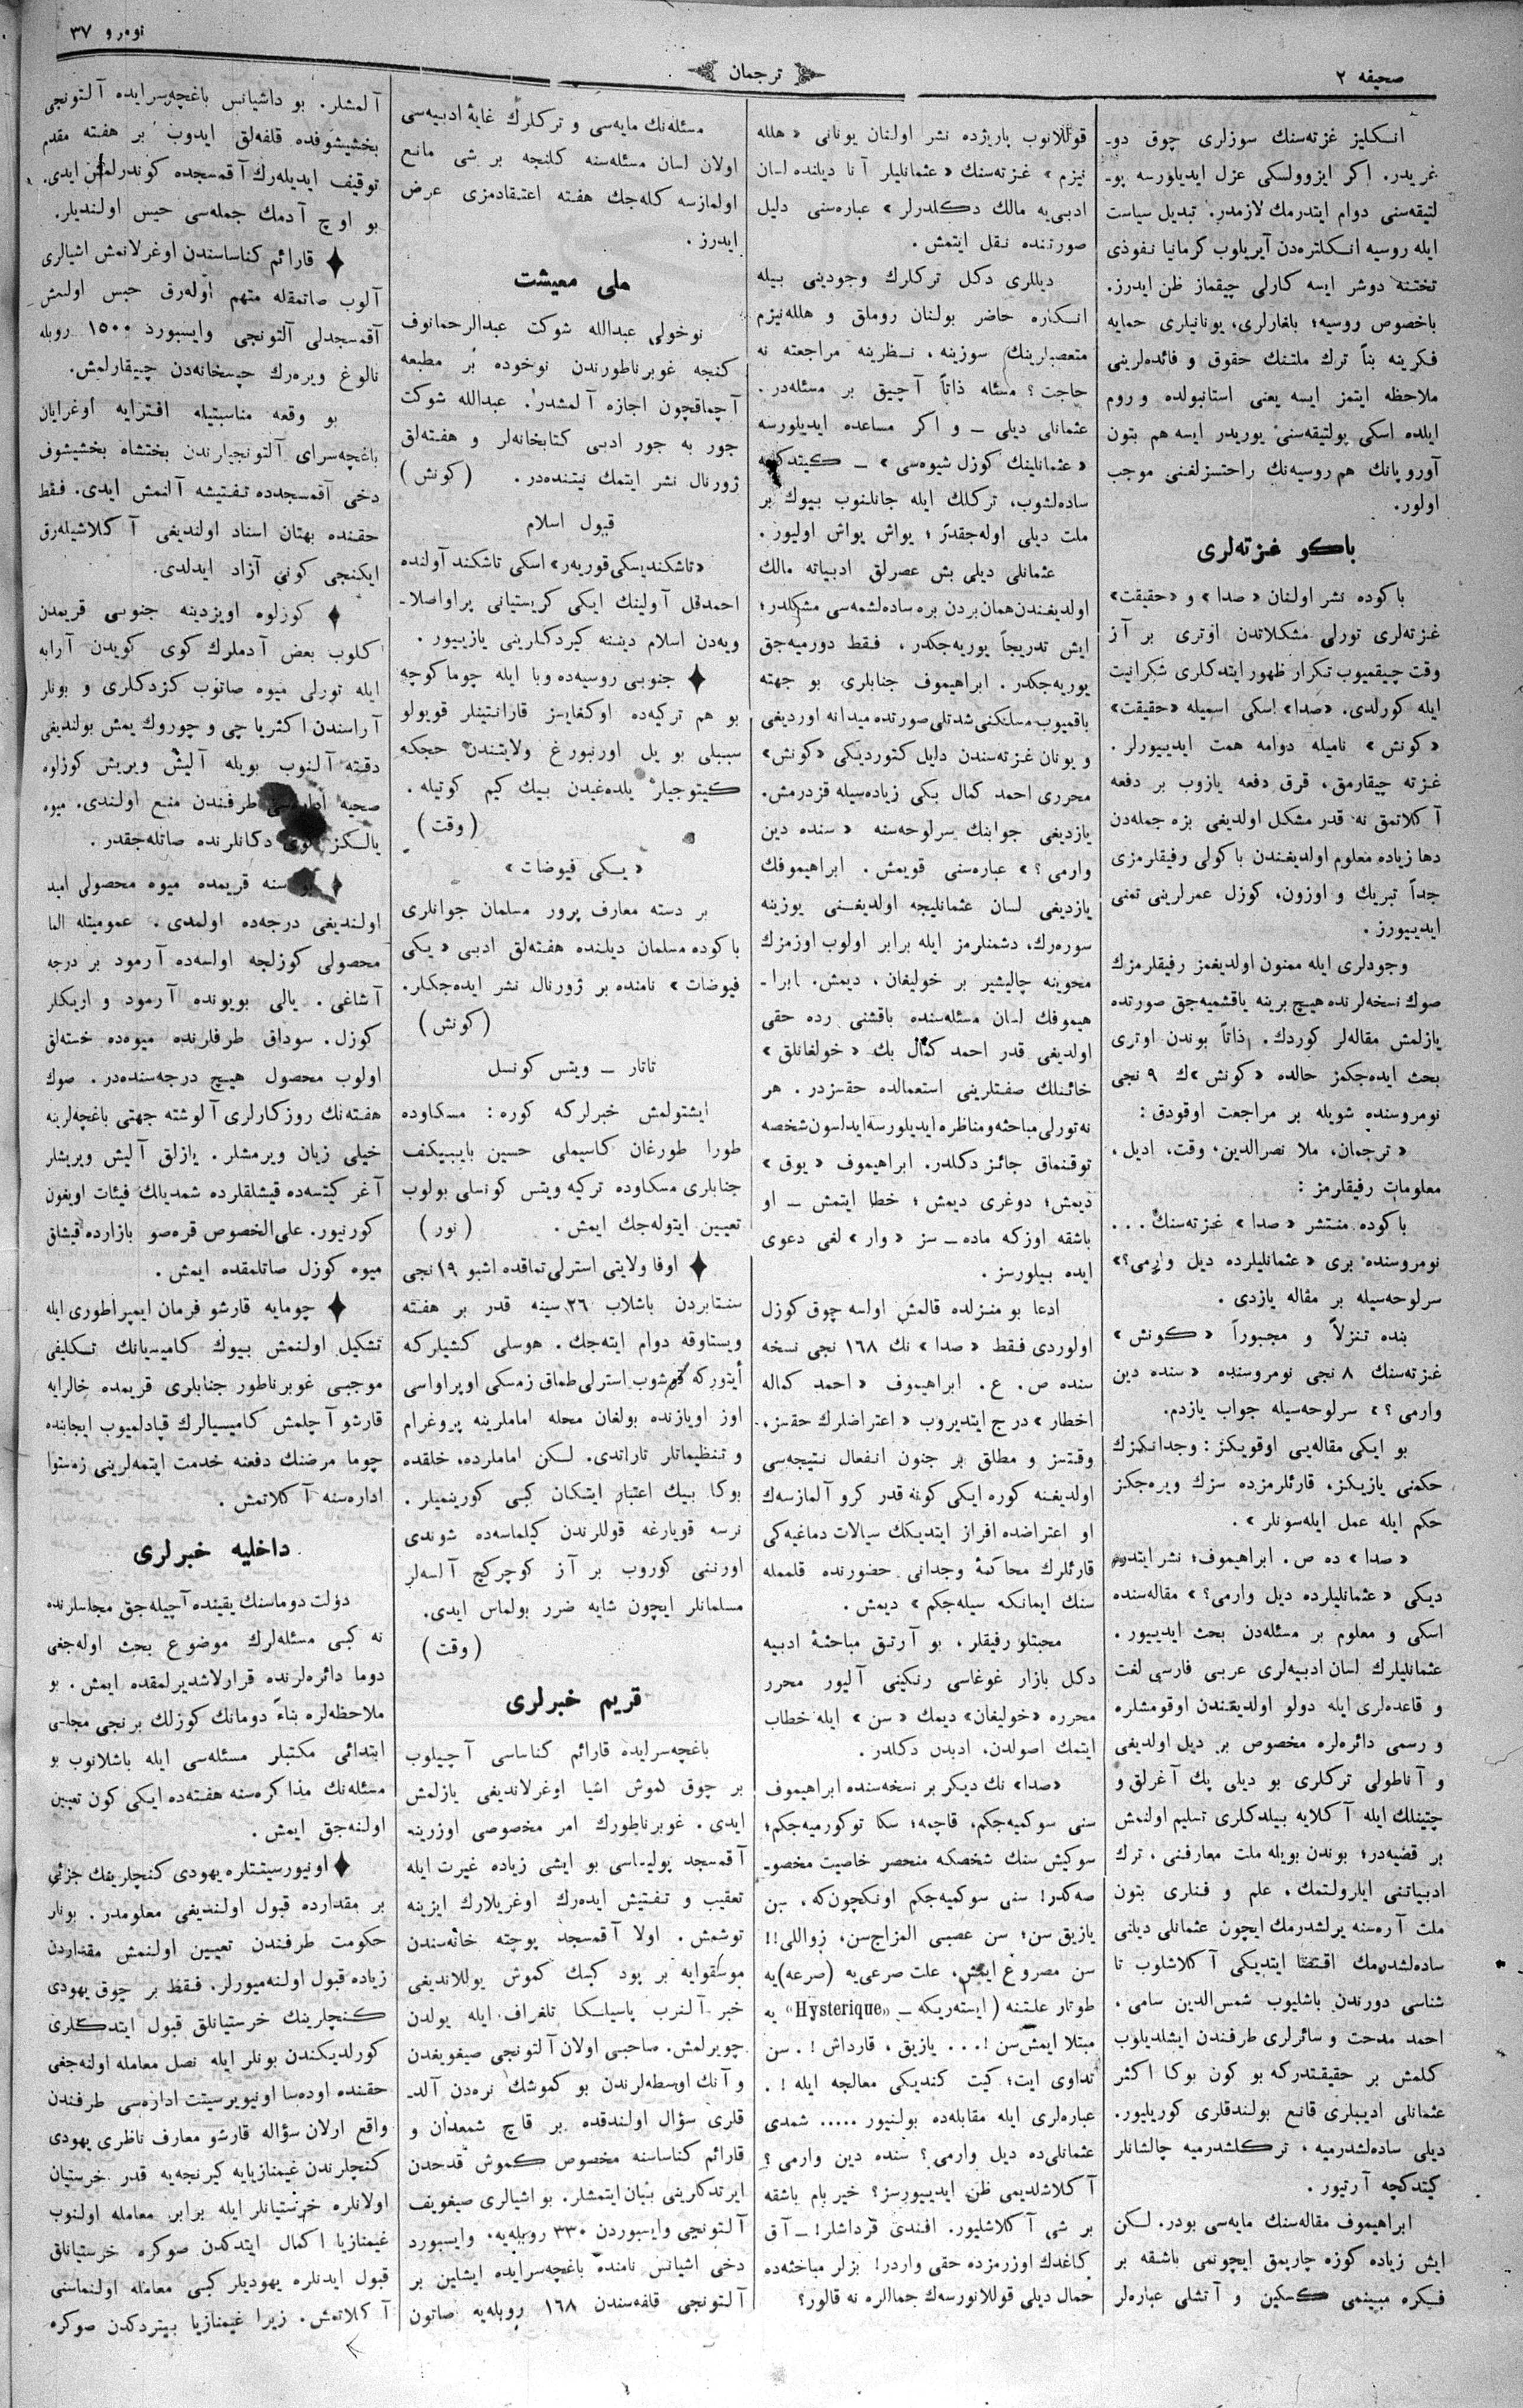 صحیفه ٢
ترجمان
نومرو ٣٧
انكلیز غزته‌سنك سوزلری چوق دو-
غریدر. اكر ایزوولسكی عزل ایدیلورسه بو-
لتیقه‌سنی دوام ایتدرمك لازمدر. تبدیل سیاست
ایله روسیه انكلتره‌دن آیریلوب كرمانیا نفوذی
تختنه دوشر ایسه كارلی چیقماز ظن ایدرز.
باخصوص روسیه؛ بلغارلری، یونانیلری حمایه
فكرینه بناً ترك ملتنك حقوق و فائده‌لرینی
ملاحظه ایتمز ایسه یعنی استانبولده و روم
ایلده اسكی پولتیقه‌سنی یوریدر ایسه هم بتون
آوروپانك هم روسیه‌نك راحتسزلغنی موجب
اولور.
باكو غزته‌لری
باكوده نشر اولنان «صدا» و «حقیقت»
غزته‌لری تورلی مشكلاتدن اوتری بر آز
وقت چیقمیوب تكرار ظهور ایتدكلری شكرانیت
ایله كورلدی. «صدا» اسكی اسمیله «حقیقت»
«كونش» نامیله دوامه همت ایدییورلر.
غزته چیقارمق، قرق دفعه یازوب بر دفعه
آكلاتمق نه قدر مشكل اولدیغی بزه جمله‌دن
دها زیاده معلوم اولدیغندن باكولی رفیقلرمزی
جداً تبریك و اوزون، كوزل عمرلرینی تمنی
ایدییورز.
وجودلری ایله ممنون اولدیغمز رفیقلرمزك
صوك نسخه‌لرنده هیچ برینه یاقشمیه‌جق صورتده
یازلمش مقاله‌لر كوردك. ذاتاً بوندن اوتری
بحث ایده‌جكمز حالده «كونش»ك ٩ نجی
نومروسنده شویله بر مراجعت اوقودق:
«ترجمان، ملا نصرالدین، وقت، ادیل،
معلومات رفیقلرمز:
باكوده منتشر «صدا» غزته‌سنك ...
نومروسنده بری «عثمانلیلرده دیل وارمی؟»
سرلوحه‌سیله بر مقاله یازدی.
بنده تنزلاً و مجبوراً «كونش»
غزته‌سنك ٨ نجی نومروسنده «سنده دین
وارمی؟» سرلوحه‌سیله جواب یازدم.
بو ایكی مقاله‌یی اوقویكز: وجدانكزك
حكمنی یازیكز، قارئلرمزده سزك ویره‌جكز
حكم ایله عمل ایله‌سونلر».
«صدا» ده ص. ابراهیموف؛ نشر ایتدر
دیكی «عثمانلیلرده دیل وارمی؟» مقاله‌سنده
اسكی و معلوم بر مسئله‌دن بحث ایدییور.
عثمانلیلرك لسان ادبیه‌لری عربی فارسی لغت
و قاعده‌لری ایله دولو اولدیقندن اوقومشلره
و رسمی دائره‌لره مخصوص بر دیل اولدیغی
و آناطولی تركلری بو دیلی پك آغرلق و
چتینلك ایله آكلایه بیلدكلری تسلیم اولنمش
بر قضیه‌در؛ بوندن بویله ملت معارفنی، ترك
ادبیاتنی ایارولتمك، علم و فنلری بتون
ملت آره‌سنه یرلشدرمك ایچون عثمانلی دیلنی
ساده‌لشدرمك اقتضا ایتدیكی آكلاشلوب تا
شناسی دورندن باشلیوب شمس‌الدین سامی،
احمد مدحت و سائرلری طرفندن ایشلدیلوب
كلمش بر حقیقتدركه بو كون بوكا اكثر
عثمانلی ادیبلری قانع بولندقلری كوریلیور.
دیلی ساده‌لشدرمیه، تركلشدرمیه چالشانلر
كیتدكچه آرتیور.
ابراهیموف مقاله‌سنك مایه‌سی بودر. لكن
ایش زیاده كوزه چارپمق ایچونمی باشقه بر
فكره مبینمی كسكین و آتشلی عباره‌لر
قوللانوب پاریژده نشر اولنان یونانی «هلله
نیزم» غزته‌سنك «عثمانلیلر آنا دیلنده لسان
ادبی‌یه مالك دكلدرلر» عباره‌سنی دلیل
صورتنده نقل ایتمش.
دیللری دكل تركلرك وجودینی بیله
انكاره حاضر بولنان روملق و هلله‌نیزم
متعصبلرینك سوزینه، نظرینه مراجعته نه
حاجت؟ مسئله ذاتاً آچیق بر مسئله‌در.
عثمانلی دیلی — و اكر مساعده ایدیلورسه
«عثمانلینك كوزل شیوه‌سی» — كیتدكچه
ساده‌لشوب، تركلك ایله جانلنوب بیوك بر
ملت دیلی اوله‌جقدر؛ یواش یواش اولیور.
عثمانلی دیلی بش عصرلق ادبیاته مالك
اولدیغندن همان بردن بره ساده‌لشمه‌سی مشكلدر؛
ایش تدریجاً یوریه‌جكدر، فقط دورمیه‌جق
یوریه‌جكدر. ابراهیموف جنابلری بو جهته
باقمیوب مسلكنی شدتلی صورتده میدانه اوردیغی
و یونان غزته‌سندن دلیل كتوردیكی «كونش»
محرری احمد كمال بكی زیاده‌سیله قزدرمش.
یازدیغی جوابنك سرلوحه‌سنه «سنده دین
وارمی؟» عباره‌سنی قویمش. ابراهیموفك
یازدیغی لسان عثمانلیچه اولدیغنی یوزینه
سوره‌رك، دشمنلرمز ایله برابر اولوب اوزمزك
محوینه چالیشیر بر خولیغان، دیمش. ابرا-
هیموفك لسان مسئله‌سنده باقشنی رده حقی
اولدیغی قدر احمد كمال بك «خولغانلق»
خائنلك صفتلرینی استعمالده حقسزدر. هر
نه‌تورلی مباحثه‌ومناظره ایدیلورسه‌ایدلسون‌شخصه
توقنماق جائز دكلدر. ابراهیموف «یوق»
دیمش؛ دوغری دیمش؛ خطا ایتمش — او
باشقه اوزكه ماده- سز «وار» لغی دعوی
ایده بیلورسز.
ادعا بو منزلده قالمش اولسه چوق كوزل
اولوردی فقط «صدا» نك ١٦٨ نجی نسخه
سنده ص. ع. ابراهیموف «احمد كماله
اخطار» درج ایتدیروب «اعتراضلرك حقسز،
وقتسز و مطلق بر جنون انفعال نتیجه‌سی
اولدیغنه كوره ایكی كونه قدر كرو آلمازسه‌ك
او اعتراضده افراز ایتدیكك سیالات دماغیه‌كی
قارئلرك محاكمهٔ وجدانی حضورنده قلممله
سنك ایمانكه سیله‌جكم» دیمش.
محبتلو رفیقلر، بو آرتق مباحثهٔ ادبیه
دكل بازار غوغاسی رنكینی آلیور محرر
محرره «خولیغان» دیمك «سن» ایله خطاب
ایتمك اصولدن، ادبدن دكلدر.
«صدا» نك دیكر بر نسخه‌سنده ابراهیموف
سنی سوكمیه‌جكم، قاچمه؛ سكا توكورمیه‌جكم؛
سوكیش سنك شخصكه منحصر خاصیت مخصو-
صه‌كدر! سنی سوكمیه‌جكم اونكچون‌كه، سن
یازیق سن؛ سن عصبی المزاج‌سن، زواللی!!
سن مصروع ایمش، علت صرعی‌یه (صرعه)یه
طوتار علتنه (ایسته‌ریكه — «Hysterique» یه
مبتلا ایمش‌سن!... یازیق، قارداش!. سن
تداوی ایت؛ كیت كندیكی معالجه ایله!.
عباره‌لری ایله مقابله‌ده بولنیور ..... شمدی
عثمانلی‌ده دیل وارمی؟ سنده دین وارمی؟
آكلاشلدیمی ظن ایدییورسز؟ خیر بام باشقه
بر شی آكلاشلیور. افندی قرداشلر! — آق
كاغدك اوزرمزده حقی واردر! بزلر مباخثه‌ده
حمال دیلی قوللانورسه‌ك جماللره نه قالور؟
مسئله‌نك مایه‌سی و تركلرك غایهٔ ادبیه‌سی
اولان لسان مسئله‌سنه كلنجه بر شی مانع
اولمازسه كله‌جك هفته اعتقادمزی عرض
ایدرز.
ملی معیشت
نوخولی عبدالله شوكت عبدالرحمانوف
كنجه غوبرناطورندن نوخوده بر مطبعه
آچماقچون اجازه آلمشدر. عبدالله شوكت
جور به جور ادبی كتابخانه‌لر و هفته‌لق
ژورنال نشر ایتمك نیتنده‌در. (كونش)
قبول اسلام
«تاشكندیسكی قوریه‌ر» اسكی تاشكند آولنده
احمدقل آولینك ایكی كریستیانی پراواصلا-
ویه‌دن اسلام دیننه كیردكلرینی یازییور.
جنوبی روسیه‌ده وبا ایله چوما كوچه
بو هم تركیه‌ده اوكغایسز قارانتینلر قویولو
سببلی بو یل اورنبورغ ولایتندن حجكه
كیتوجیلر یلده‌غیدن بیك كیم كوتیله.
(وقت)
«یكی فیوضات»
بر دسته معارف پرور مسلمان جوانلری
باكوده مسلمان دیلنده هفته‌لق ادبی «یكی
فیوضات» نامنده بر ژورنال نشر ایده‌جكلر.
(كونش)
تاتار — ویتس كونسل
ایشتولمش خبرلركه كوره: مسكاوده
طورا طورغان كاسیملی حسین بایبیكف
جنابلری مسكاوده تركیه ویتس كونسلی بولوب
تعیین ایتوله‌جك ایمش. (نور)
اوفا ولایتی استرلی تماقده اشبو ١٩ نجی
سنتابردن باشلاب ٢٦ سینه قدر بر هفته
ویستاوقه دوام ایته‌جك. هوسلی كشیلركه
استرلی طماق زمسكی اوپراواسی
اوز اویازنده بولغان محله امامارینه پروغرام
و تنظیماتلر تاراتدی. لكن اماملرده، خلقده
بوكا بیك اعتبار ایتكان كبی كورینمیلر.
نرسه قویارغه قوللرندن كیلماسه‌ده شوندی
اورننی كوروب بر آز كوچركیچ آلسه‌لر
مسلمانلر ایچون شایه ضرر بولماس ایدی.
(وقت)
قریم خبرلری
باغچه‌سرایده قارائم كناساسی آچیلوب
بر چوق كموش اشیا اوغرلاندیغی یازلمش
ایدی. غوبرناطورك امر مخصوصی اوزرینه
آقمسجد پولیاسی بو ایشی زیاده غیرت ایله
تعقیب و تفتیش ایده‌رك اوغریلارك ایزینه
توشمش. اولا آقمسجد پوچته خانه‌سندن
موسقوایه بر پود كیك كموش یوللاندیغی
خبر آلنرب پاسیلكا تلغراف ایله یولدن
چویرلمش. صاحبی اولان آلتونجی صیغویغدن
و آنك اوسطه‌لرندن بو كموشك نره‌دن آلد-
قلری سؤال اولندقده بر قاچ شمعدان و
قارائم كناساسنه مخصوص كموش قدحدن
ایرتدكلرینی بیان ایتمشلر. بو اشیالری صیغویف
آلتونجی وایسبوردن ٣٣٠ روبله‌یه، وایسبورد
دخی اشیانس نامنده باغچه‌سرایده ایشلین بر
آلتونجی قلفه‌سندن ١٦٨ روبله‌یه صاتون
آلمشلر. بو داشیانس باغچه‌سرایده آلتونجی
بخشیشوفده قلفه‌لق ایدوب بر هفته مقدم
توقیف ایدیله‌رك آقمسجده كوندرلمش ایدی.
بو اوچ آدمك جمله‌سی حبس اولندیلر.
قارائم كناساسندن اوغرلانمش اشیالری
آلوب صاتمقله متهم اوله‌رق حبس اولمش
آقمسجدلی آلتونجی وایسبورد ١٥٠٠ روبله
نالوغ ویره‌رك حبسخانه‌دن چیقارلمش.
بو وقعه مناسبتیله افترایه اوغرایان
باغچه‌سرای آلتونجیلرندن بختشاه بخشیشوف
دخی آقمسجدده تفتیشه آلنمش ایدی. فقط
حقنده بهتان اسناد اولندیغی آكلاشیله‌رق
ایكنجی كونی آزاد ایدلدی.
كوزلوه اویزدینه جنوبی قریمدن
كلوب بعض آدملرك كوی كویدن آرابه
ایله تورلی میوه صاتوب كزدكلری و بونلر
آراسندن اكثریا چی و چوروك یمش بولندیغی
دقته آلنوب بویله آلیش ویریش كوزلوه
صحیه طرفندن منع اولندی. میوه
یالكز دكانلرنده صاتله‌جقدر.
سنه قریمده میوه محصولی امید
اولندیغی درجه‌ده اولمدی. عمومیتله الما
محصولی كوزلجه اولسه‌ده آرمود بر درجه
آشاغی. یالی بویونده آرمود و اریكلر
كوزل. سوداق طرفلرنده میوه‌ده خسته‌لق
اولوب محصول هیچ درجه‌سنده‌در. صوك
هفته‌نك روزكارلری آلوشته جهتی باغچه‌لرینه
خیلی زیان ویرمشلر. یازلق آلیش ویریشلر
آغر كیتسه‌ده قیشلقلرده شمدیلك فیئات اویغون
كورنیور. علی‌الخصوص قره‌صو بازارده قیشلق
میوه كوزل صاتلمقده ایمش.
چومایه قارشو فرمان ایمپراطوری ایله
تشكیل اولنمش بیوك كامیسیانك تسكلیفی
موجبی غوبرناطور جنابلری قریمده خالرایه
قارشو آچلمش كامیسیالرك قپادلمیوب ایجابنده
چوما مرضنك دفعنه خدمت ایتمه‌لرینی زمستوا
اداره‌سنه آكلاتمش.
داخلیه خبرلری
دؤلت دوماسنك یقینده آچیله‌جق مجلسلرنده
نه كبی مسئله‌لرك موضوع بحث اوله‌جغی
دوما دائره‌لرنده قرارلاشدیرلمقده ایمش. بو
ملاحظه‌لره بناءً دومانك كوزلك برنجی مجلسی
ابتدائی مكتبلر مسئله‌سی ایله باشلانوب بو
مسئله‌نك مذاكره‌سنه هفته‌ده ایكی كون تعیین
اولنه‌جق ایمش.
اونیورسیتتلره یهودی كنچلرینك جزئی
بر مقدارده قبول اولندیغی معلومدر. بونلر
حكومت طرفندن تعیین اولنمش مقداردن
زیاده قبول اولنه‌میورلر. فقط بر چوق یهودی
كنچلرینك خرستیانلق قبول ایتدكلری
كورلدیكندن بونلر ایله نصل معامله اولنه‌جغی
حقنده اوده‌سا اونیویرسیتت اداره‌سی طرفندن
واقع اولان سؤاله قارشو معارف ناظری یهودی
كنچلرندن غیمنازیایه كیرنجه‌یه قدر خرستیان
اولانلره خرستیانلر ایله برابر معامله اولنوب
غیمنازیا اكمال ایتدكدن صوكره خرستیانلق
قبول ایدنلره یهودیلر كبی معامله اولنماسنی
آكلاتمش. زیرا غیمنازیا بیتردكدن صوكره